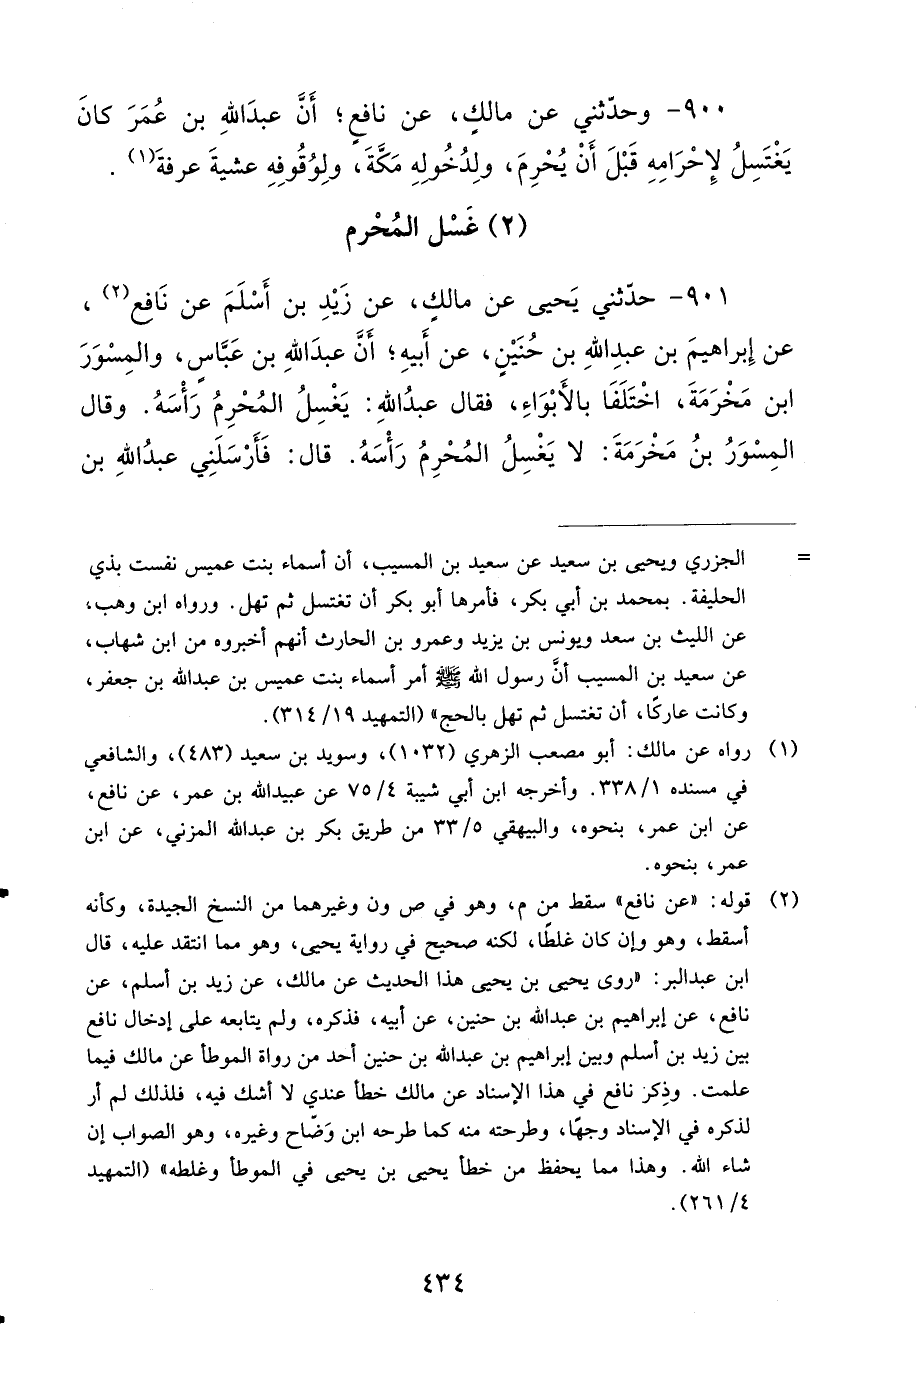 ٩٠٠- وحدّثني عن مالكٍ، عن نافعٍ؛ أَنَّ عبدَاللهِ بن عُمَرَ كانَ
يَغْتَسِلُ لِإحْرَامِهِ قَبْلَ أَنْ يُحْرِمَ، ولِدُخُولِهِ مَكَّةَ، ولِوُقُوفِهِ عشيةَ عرفةَ(١) .
(٢) غَسْل المُحْرم
٩٠١- حدّثني يَحيى عن مالكٍ، عن زَيْدِ بن أَسْلَمَ عن نَافعٍ(٢) ،
عن إبراهيمَ بن عبدِاللهِ بن حُنَيْنٍ، عن أَبيهِ؛ أَنَّ عبدَاللهِ بن عَبَّاسٍ، والمِسْوَرَ
ابن مَخْرَمَةَ، اخْتَلَفَا بالأَبْوَاءِ، فقال عبدُاللهِ: يَغْسِلُ المُحْرِمُ رَأْسَهُ. وقال
المِسْوَرُ بنُ مَخْرَمَةَ: لا يَغْسِلُ المُحْرِمُ رَأْسَهُ. قال: فَأَرْسَلَنِي عبدُاللهِ بن
= الجزري ويحيى بن سعيد عن سعيد بن المسيب، أن أسماء بنت عميس نفست بذي
الحليفة. بمحمد بن أبي بكر، فأمرها أبو بكر أن تغتسل ثم تهل. ورواه ابن وهب،
عن الليث بن سعد ويونس بن يزيد وعمرو بن الحارث أنهم أخبروه من ابن شهاب،
عن سعيد بن المسيب أنَّ رسول الله ﷺ أمر أسماء بنت عميس بن عبدالله بن جعفر،
وكانت عاركًا، أن تغتسل ثم تهل بالحج» (التمهيد ١٩/ ٣١٤).
(١) رواه عن مالك: أبو مصعب الزهري (١٠٣٢)، وسويد بن سعيد (٤٨٣)، والشافعي
في مسنده ١/ ٣٣٨. وأخرجه ابن أبي شيبة ٤/ ٧٥ عن عبيدالله بن عمر، عن نافع،
عن ابن عمر، بنحوه، والبيهقي ٥/ ٣٣ من طريق بكر بن عبدالله المزني، عن ابن
عمر، بنحوه.
(٢) قوله: «عن نافع» سقط من م، وهو في ص ون وغيرهما من النسخ الجيدة، وكأنه
أسقط، وهو وإن كان غلطًا، لكنه صحيح في رواية يحيى، وهو مما انتقد عليه، قال
ابن عبدالبر: «روى يحيى بن يحيى هذا الحديث عن مالك، عن زيد بن أسلم، عن
نافع، عن إبراهيم بن عبدالله بن حنين، عن أبيه، فذكره، ولم يتابعه على إدخال نافع
بين زيد بن أسلم وبين إبراهيم بن عبدالله بن حنين أحد من رواة الموطأ عن مالك فيما
علمت. وذِكر نافع في هذا الإسناد عن مالك خطأ عندي لا أشك فيه، فلذلك لم أر
لذكره في الإسناد وجهًا، وطرحته منه كما طرحه ابن وَضّاح وغيره، وهو الصواب إن
شاء الله. وهذا مما يحفظ من خطأ يحيى بن يحيى في الموطأ وغلطه» (التمهيد
٤/ ٢٦١).
٤٣٤